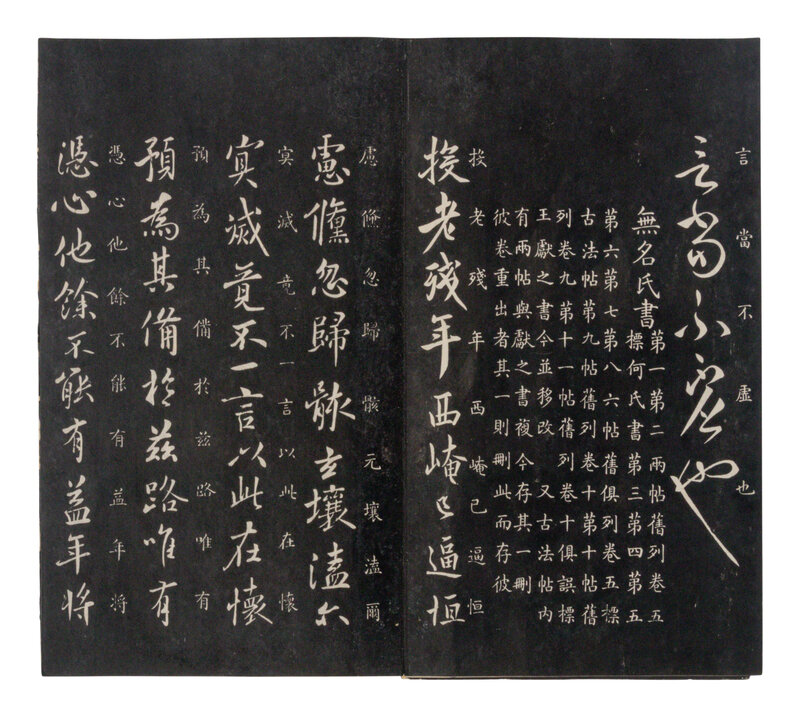 言當不虛也
言當不虛也
無名氏書
第一第二兩帖舊列卷五
標何氏書第三第四第五
第六第七第八六帖舊俱列卷五標
古法帖第九帖舊列卷十第十帖舊
列卷九第十一帖舊列卷十俱誤標
王獻之書今並移改 又古法帖內
有兩帖與獻之書複今存其一刪
彼卷重出者其一則刪此而存彼
投老殘年西崦已逼恒
投老殘年西崦已逼恒
慮儵忽歸骸元壤溘爾
慮儵忽歸骸玄壤溘尒
冥滅竟不一言以此在懷
冥滅竟不一言以此在懷
預為其備於兹路唯有
預為其備於兹路唯有
憑心他餘不能有益年將
憑心他餘不能有益年將